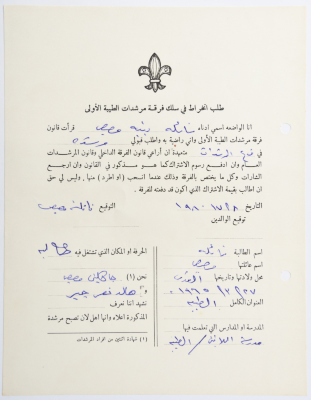 طلب انخراط في سلك فرقة مرشدات الطيبة الأولى
انا الواضعه اسمي ادناه نائله بنيه مصيص قرأت قانون
فرقة مرشدات الطيبة الأولى واني راضية به واطلب قبولي مرشده
في المرشدات متعهدة ان أراعي قانون الفرقة الداخلي وقانون المرشدات
العام وان ادفع رسوم الاشتراك كما هو مذكور في القانون وان ارجع
الشارات وكل ما يختص بالفرقة وذلك عندما انسحب (او اطرد) منها , وليس لي حق
ان اطالب بقيمة الاشتراك الذي اكون قد دفعته للفرقة .
التاريخ ١٩٨٠ التوقيع نائلة مصيص
توقيع الوالدين
اسم الطالبة نائله
اسم عائلتها مصيص
محل ولادتها وتاريخها القدس
١٩٦٥
العنوان الكامل الطيبه
المدرسة او المدارس التي تعلمت فيها
مدرسة اللاتين / الطيبه
الحرفة او المكان الذي تشتغل فيه طالبه
نحن (١)
و
نشهد اننا نعرف
المذكورة اعلاه وانها اهل لان تصبح مرشدة
(١) شهادة اثنتين من افراد المرشدات